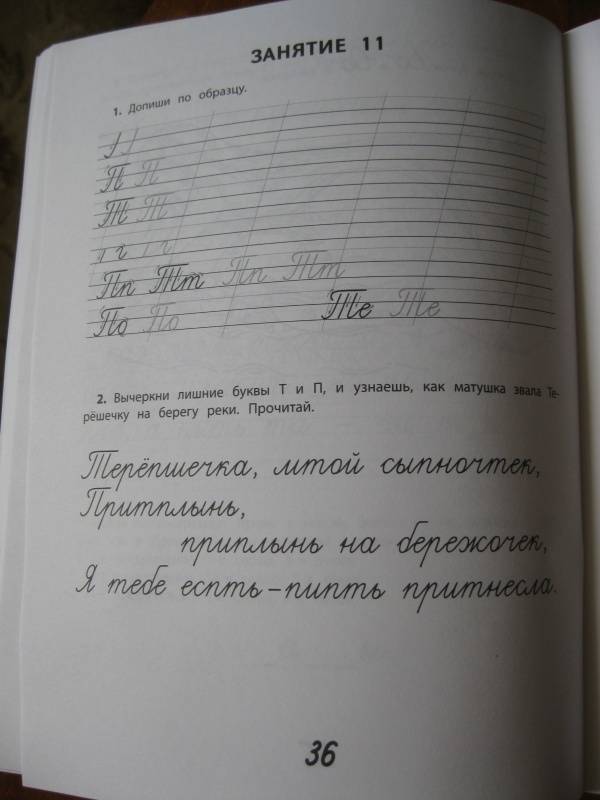 ЗАНЯТИЕ 11
1. Допиши по образцу.
П П
Т Т
г г
Пп Тт Пп Тт
По По Те Те
2. Вычеркни лишние буквы Т и П, и узнаешь, как матушка звала Те-
рёшечку на берегу реки. Прочитай.
Терёпшечка, мтой сыпночтек,
Притплынь,
приплынь на бережочек,
Я тебе еспть – пипть притнесла.
36